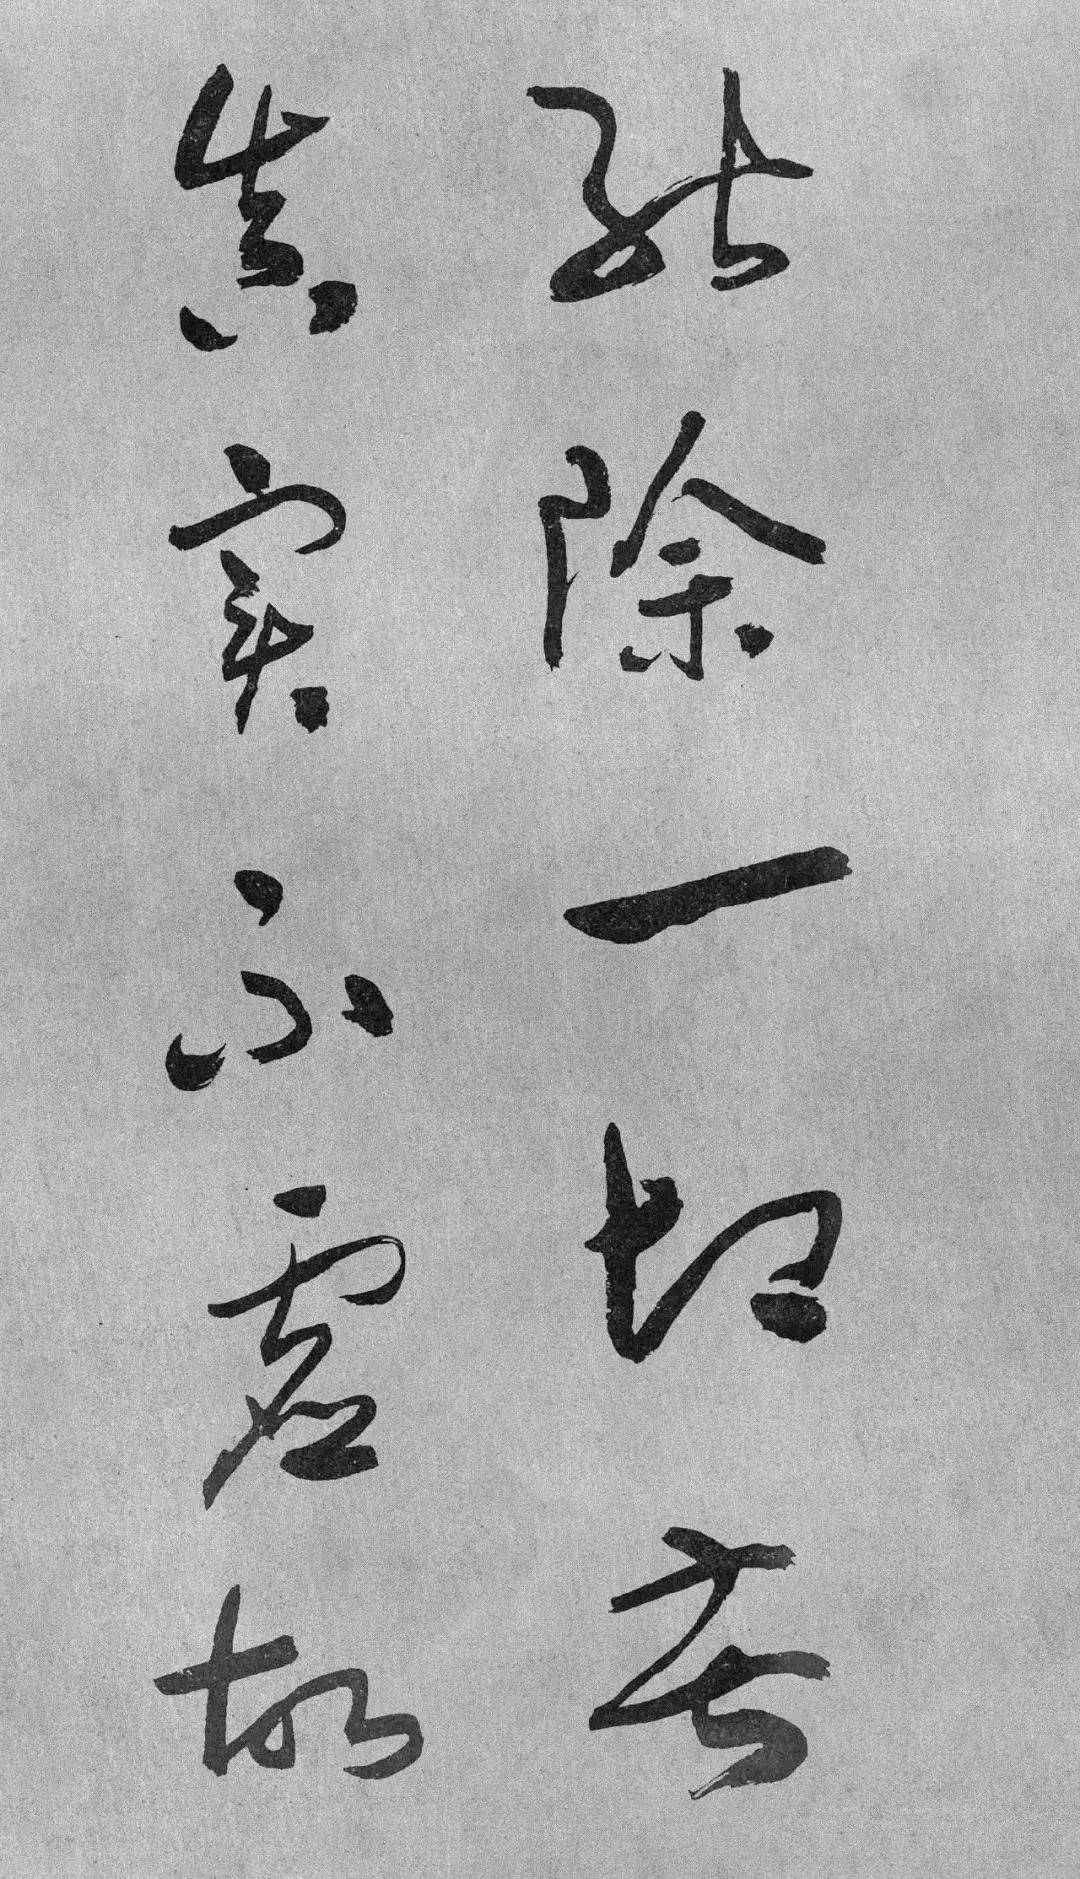 能除一切苦
真實不虛故